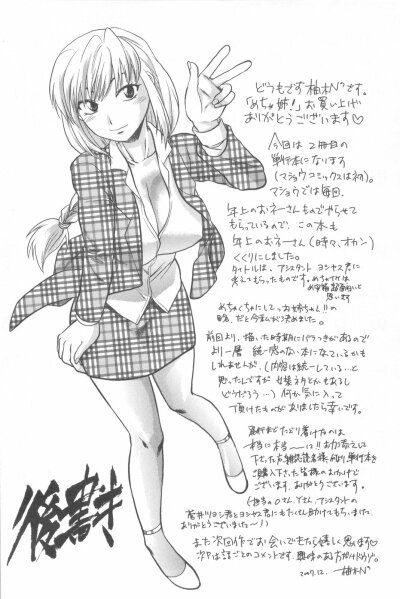 どうもです柚木N'です。
「めちゃ姉!」お買い上げ
ありがとうございます♡
今回は2冊目の
単行本になります
(マショウコミックスは初)。
マショウでは毎回、
年上のおネーさんものでやらせて
もらっているので、この本も
年上のおネーさん(時々、オカン)
くくりにしました。
タイトルは、アシスタント ヨシヤス君に
考えてもらったものです。
思います
めちゃくちゃにしてっお姉ちゃん!!の
略、だと今まんがで決めました。
前回より、描いた時期にバラつきがあるので
より一層 統一感のない本になっているかも
しれませんが、(内容は統一している…と
思ったんですが
どうだろう…)何か気に入って
頂けたものがありましたら幸いです。
単行本までたどり着けたのは
本当に本当ーに!!お力添えして
下さった方々、雑誌読者様、何より単行本を
ご購入下さった皆様のおかげで
ございます。ありがとうございます。
(担当のOさん、Yさん、アシスタントの
蒼井ツヨシ君とヨシヤス君にもたくさん助けてもらいました、
ありがとうございましたー!)
また次回作でお会いできたら嬉しく思います♡
次からは話ごとのコメントです、興味のある方だけドウゾ。
2007.12. 柚木N'
後書き